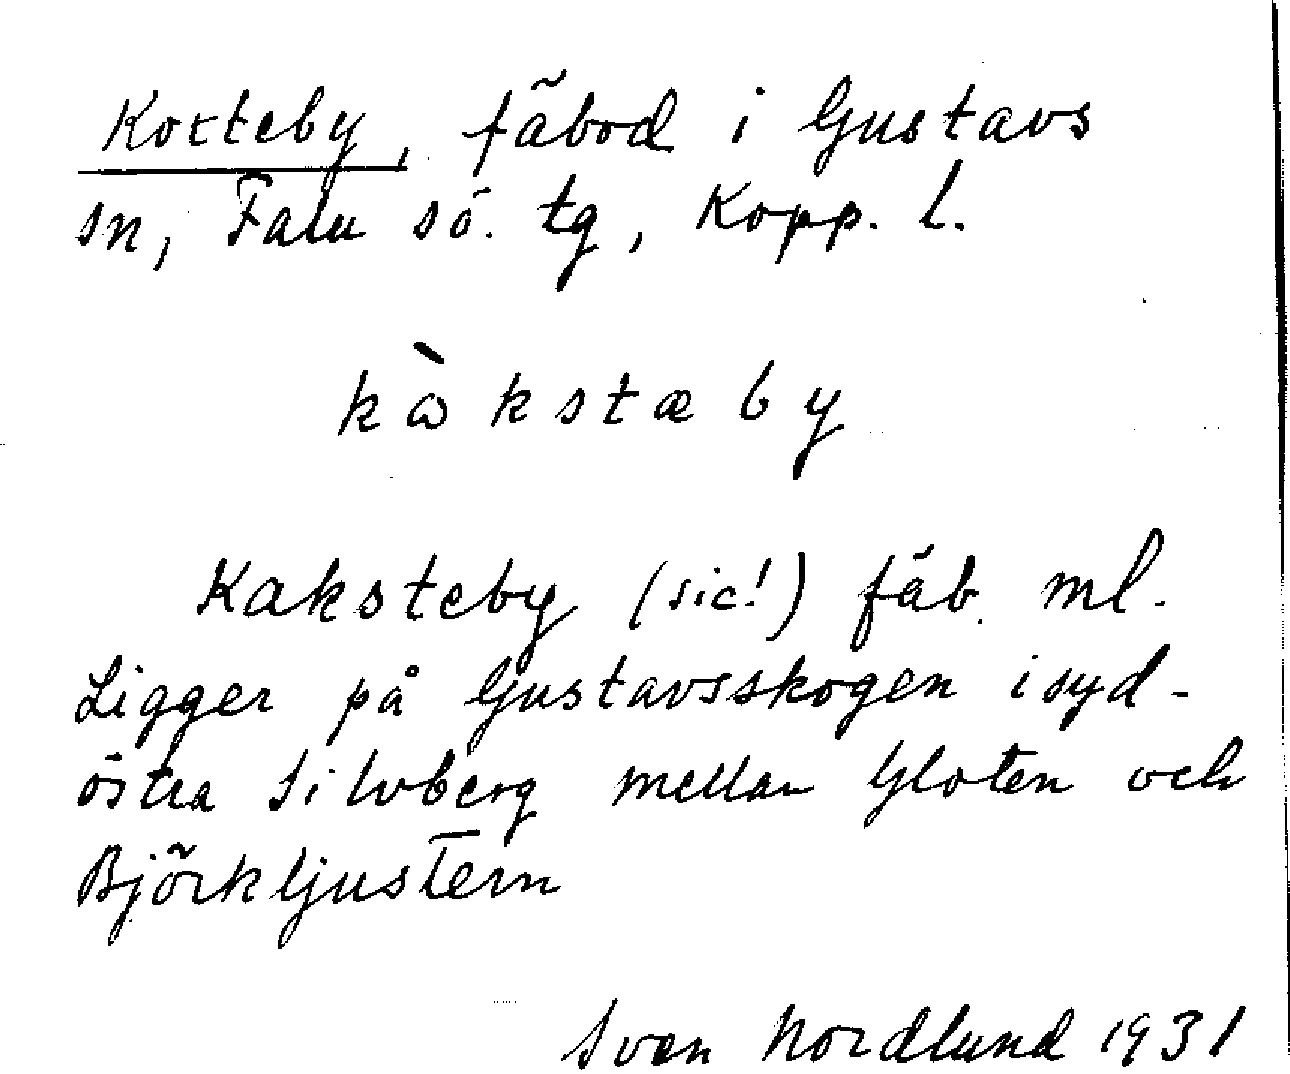 Koxteby, fäbod i Gustavs
sn, Falu sö. tg, Kopp. l.
kὼkstæby
Kaksteby (sic!) fäb. ml.
Ligger på Gustavsskogen i syd-
östra Silvberg mellan Gloten och
Björkljustern
Sven Nordlund 1931